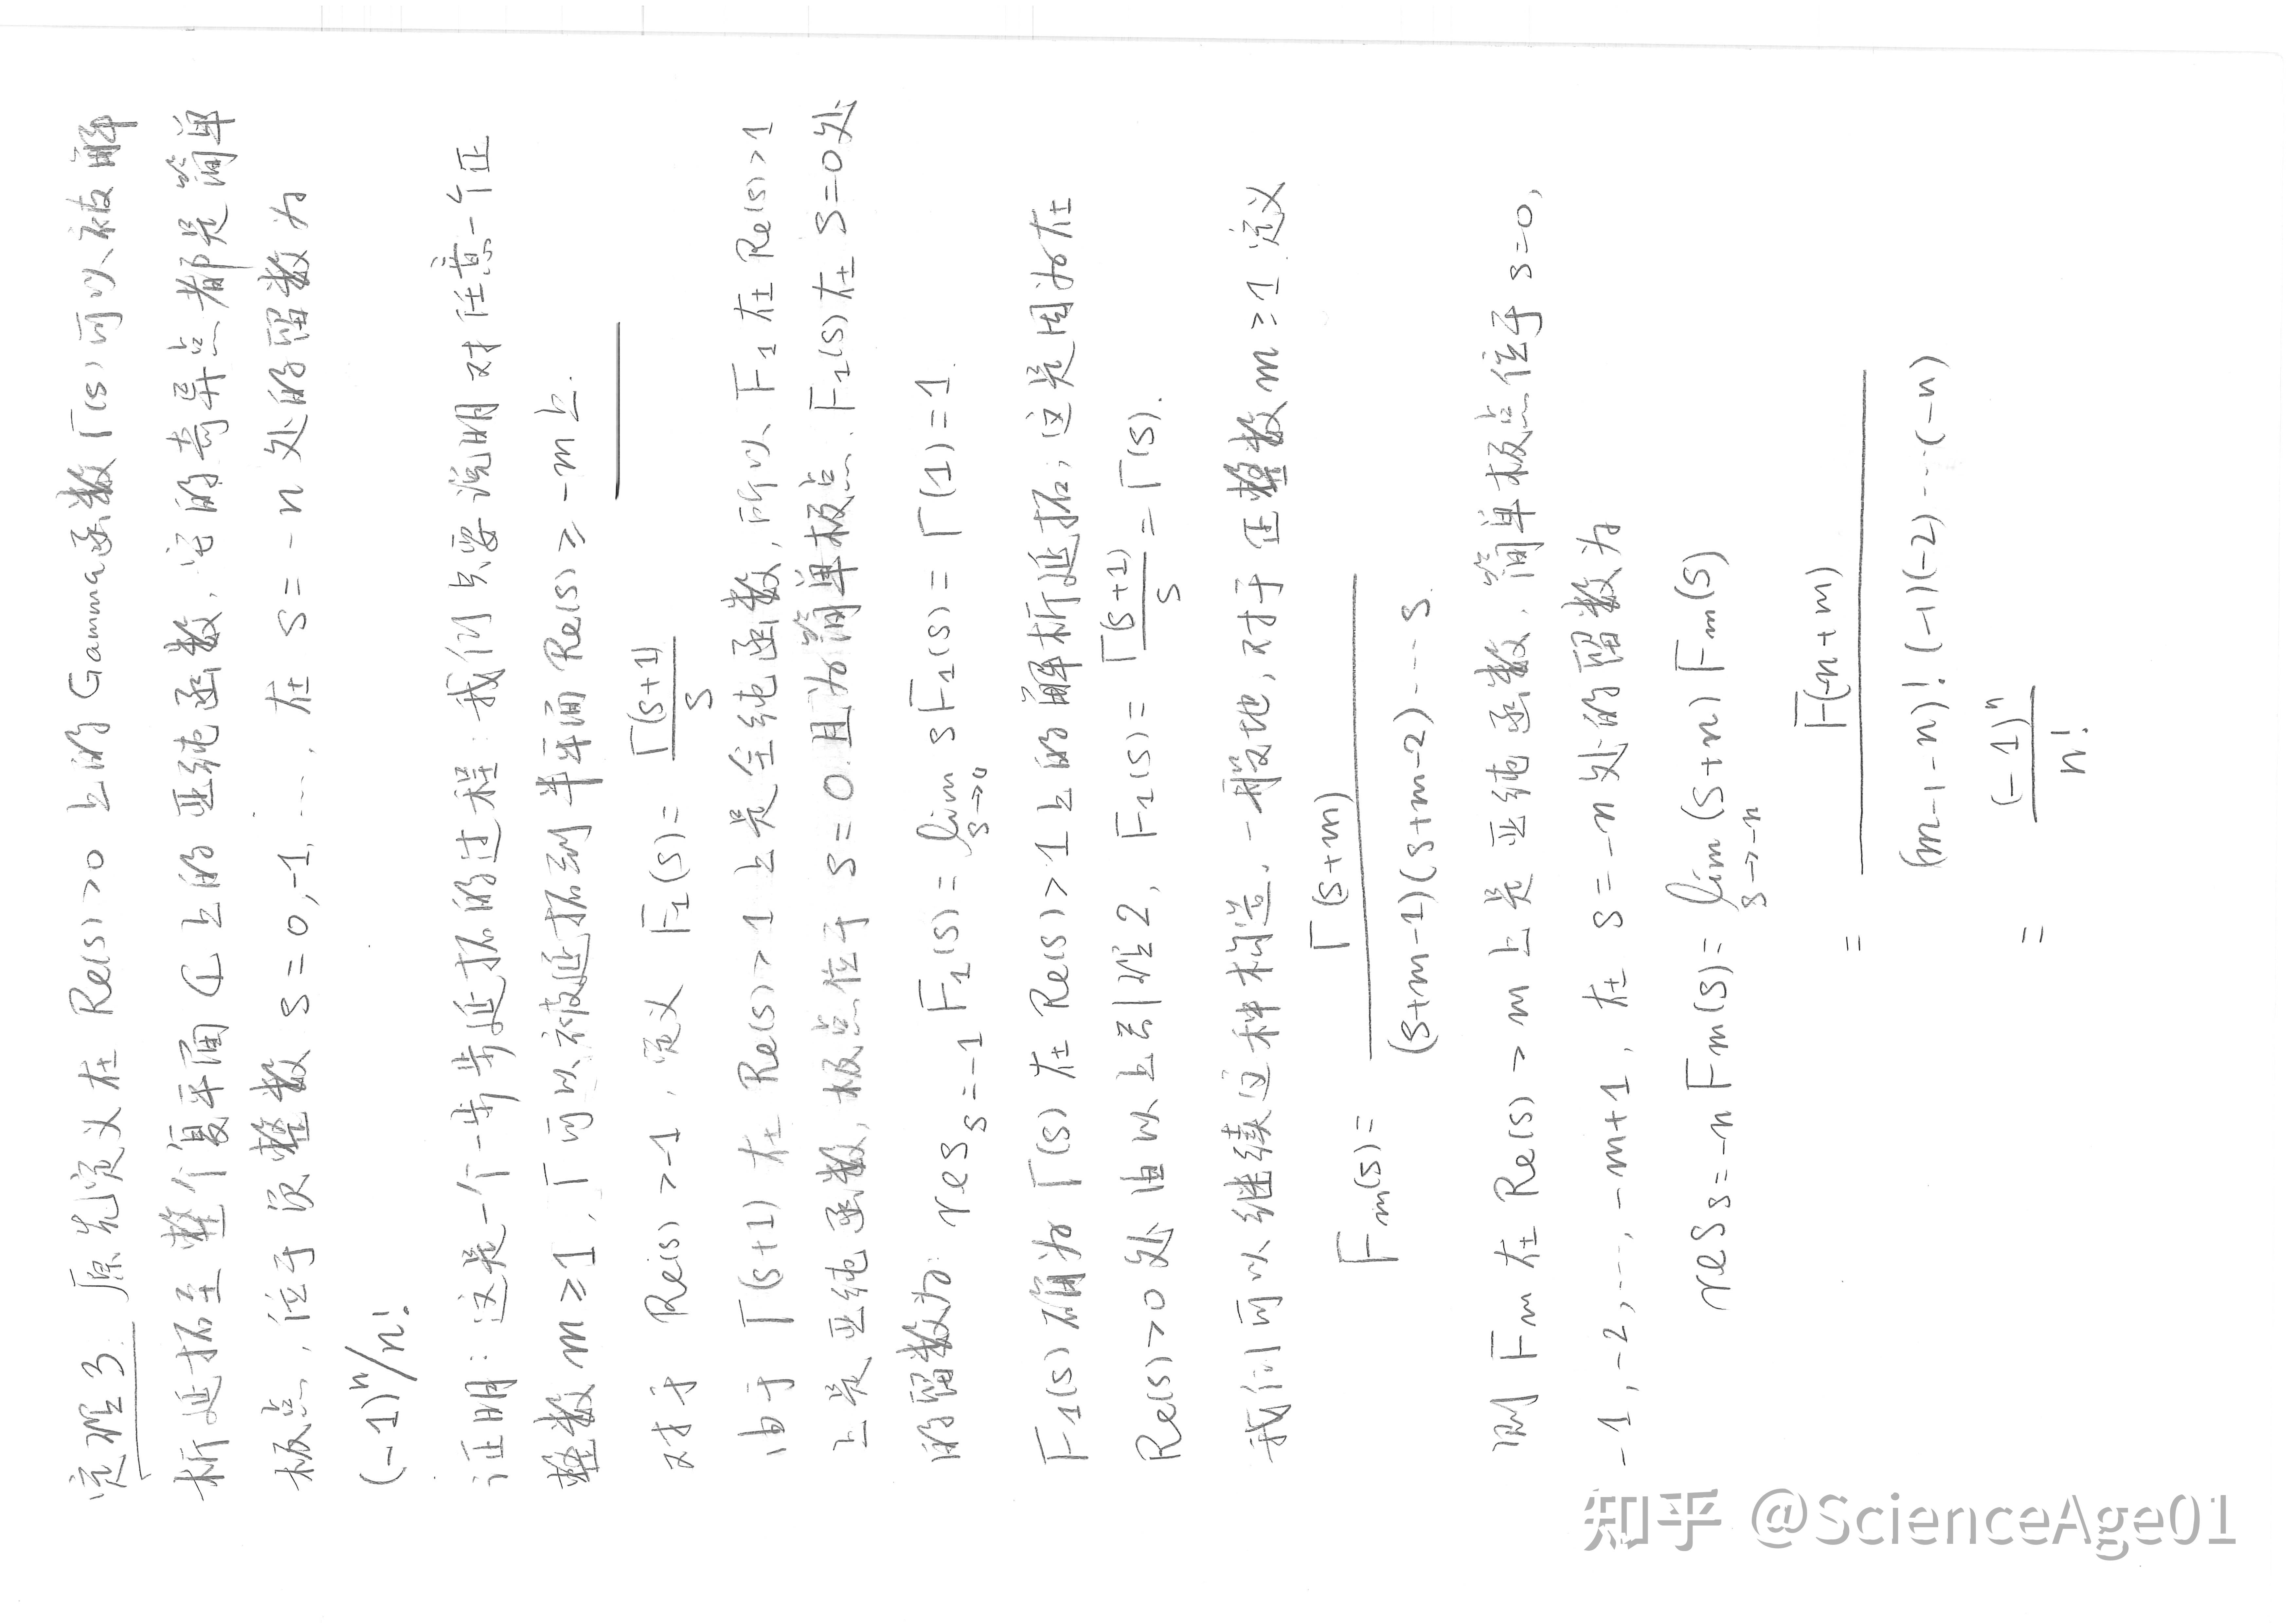 定理3. 原先定义在 Re(s)>0 上的 Gamma函数 Γ(s) 可以被解
析延拓至整个复平面 ℂ 上的亚纯函数, 它的奇异点都是简单
极点, 位于负整数 s=0,-1,…, 在 s=-n 处的留数为
(-1)ⁿ/n!
证明: 这是一个一步步延拓的过程: 我们只要说明对任意一个正
整数 m≥1, Γ 可以被延拓到半平面 Re(s)≥-m上.
对于 Re(s)>-1, 定义 F₁(s)= Γ(s+1)/s
由于 Γ(s+1) 在 Re(s)>1 上是全纯函数, 所以 F₁ 在 Re(s)>1
上是亚纯函数, 极点位于 s=0 且为简单极点. F₁(s) 在 s=0处
的留数为: res_{s=-1} F₁(s)= lim_{s→0} sF₁(s)= Γ(1)=1.
F₁(s) 确为 Γ(s) 在 Re(s)>1 上的解析延拓, 这是因为在
Re(s)>0 处由以上引理2, F₁(s)= Γ(s+1)/s = Γ(s).
我们可以继续这种构造. 一般地, 对于正整数 m≥1 定义
F_m(s)= Γ(s+m)/(s+m-1)(s+m-2)…s.
则 F_m 在 Re(s)>m 上是亚纯函数, 简单极点位于 s=0,
-1,-2,…,-m+1, 在 s=-n 处的留数为
res_{s=-n} F_m(s)= lim_{s→-n} (s+n) F_m(s)
= Γ(-n+m)/(m-1-n)!(-1)(-2)…(-n)
= (-1)ⁿ/n!
知乎 @ScienceAge01